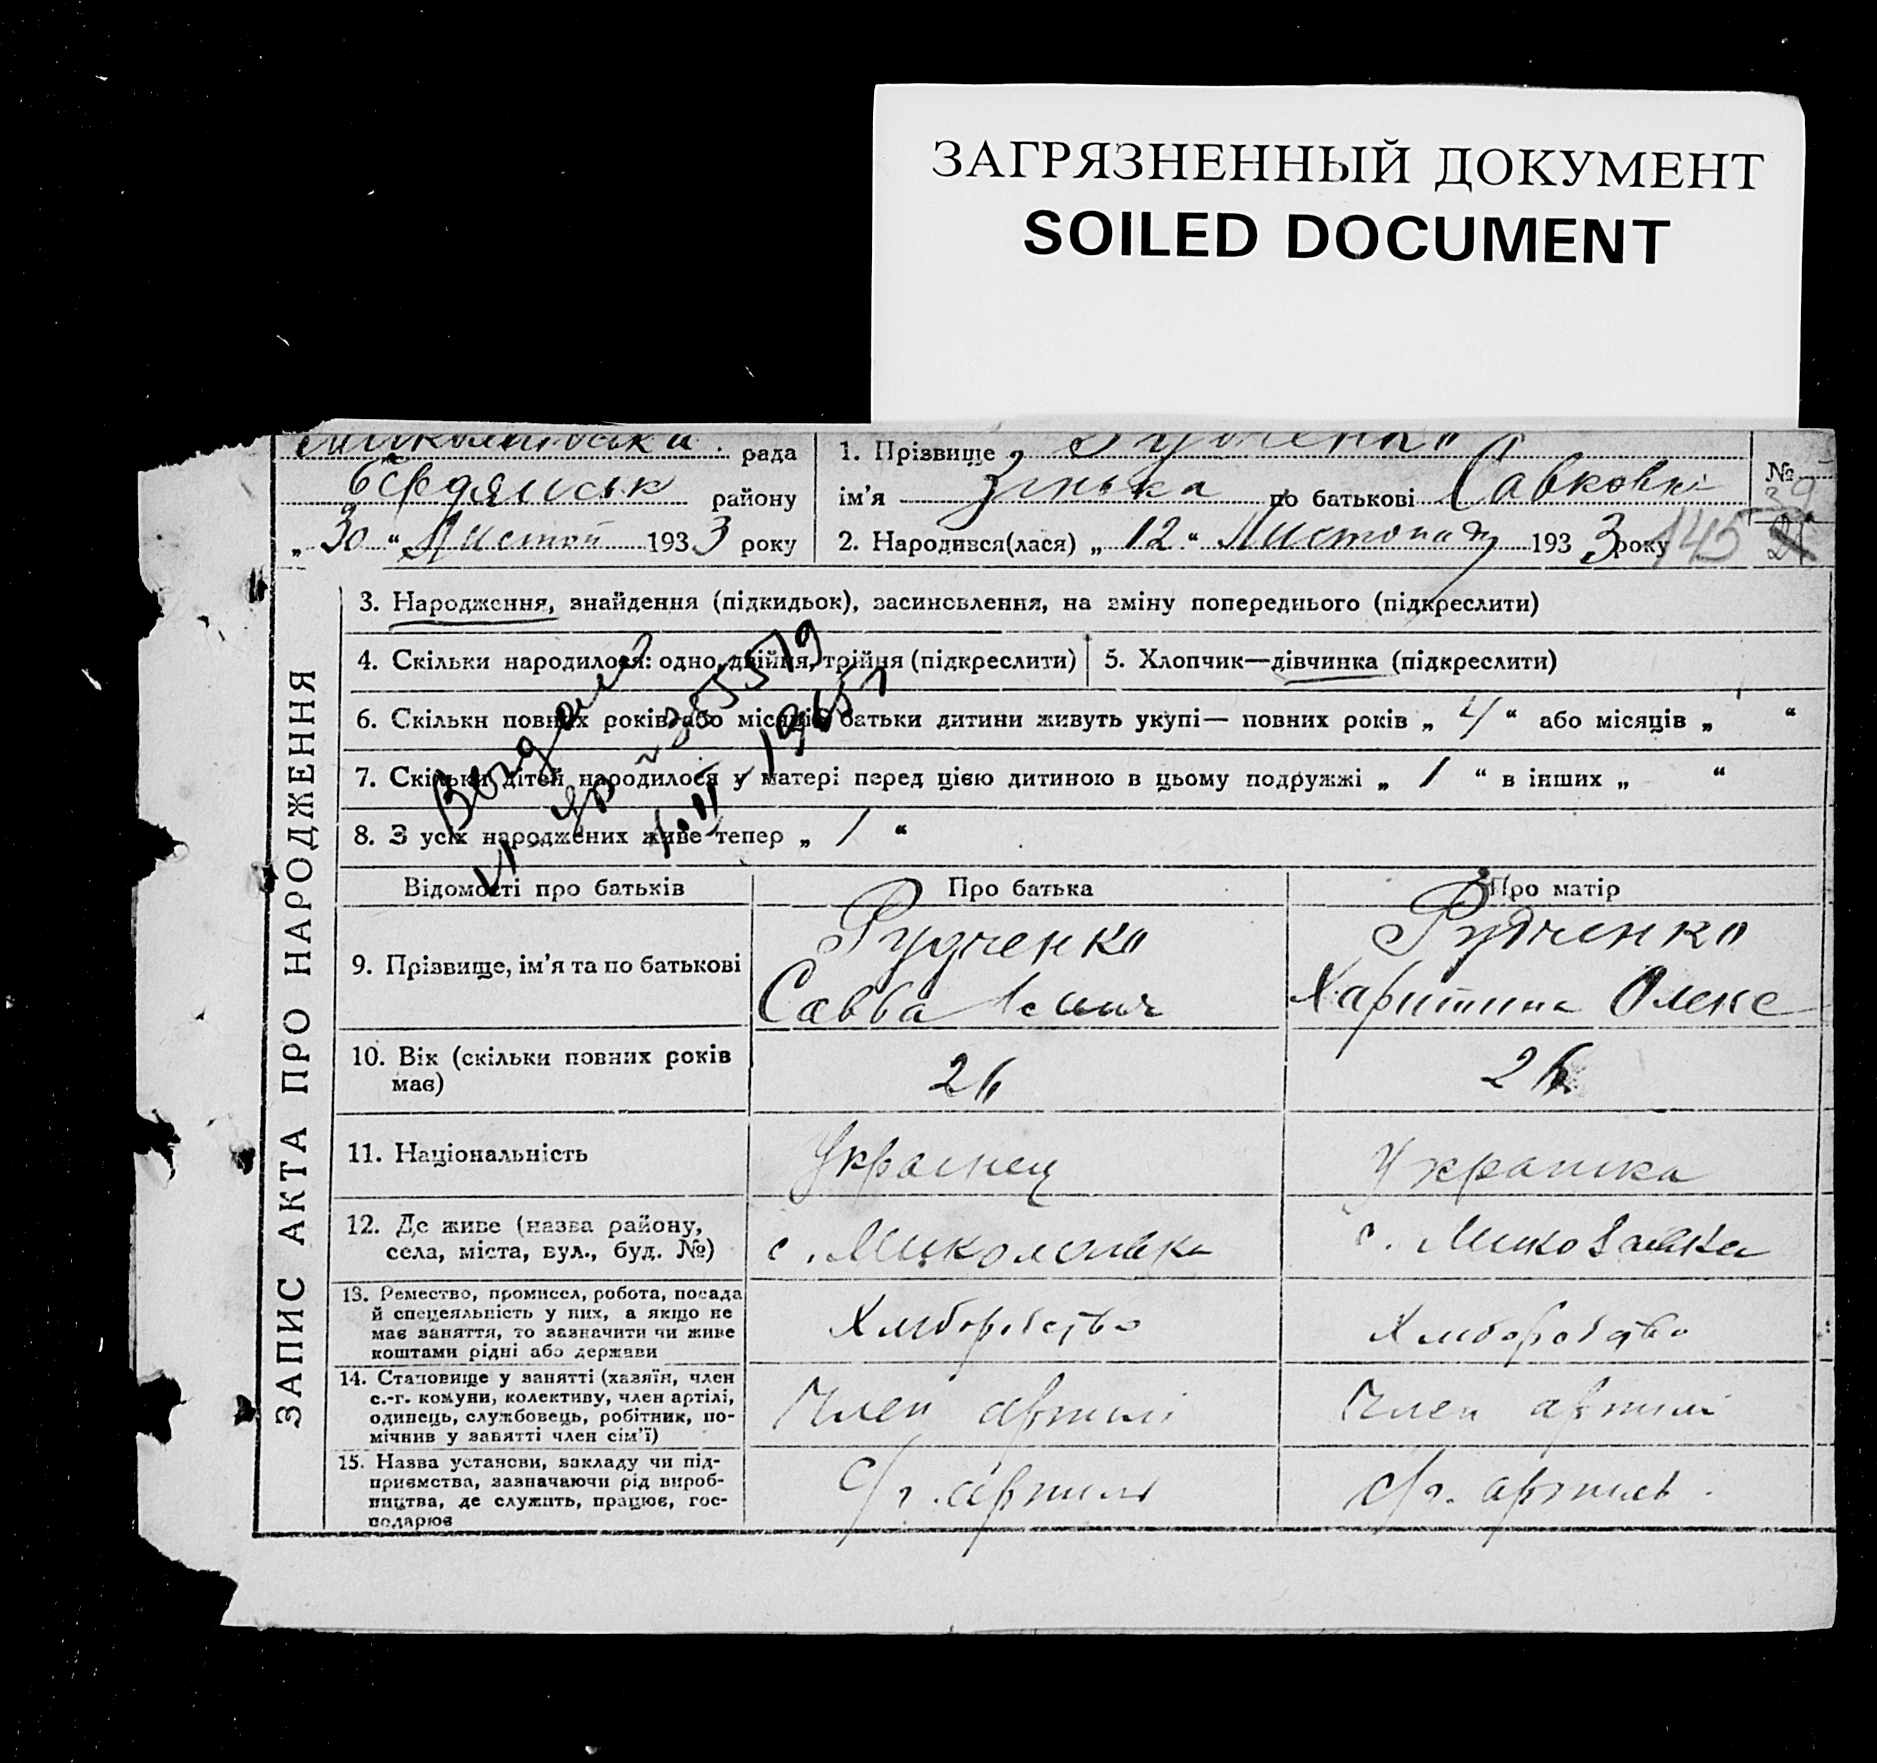 ЗАГРЯЗНЕННЫЙ ДОКУМЕНТ
SOILED DOCUMENT
рада
Бердянськ району
„ 30 “ Листоп 1933 року
1. Прізвище Рудченко
ім’я Зінька по батькові Савковні
2. Народився(лася) „ 12 “ Листопад 1933 року
№
39
145
ЗАПИС АКТА ПРО НАРОДЖЕННЯ
3. Народження, знайдення (підкидьок), засиновлення, на зміну попереднього (підкреслити)
4. Скільки народилося: одно, двійня, трійня (підкреслити)
5. Хлопчик—дівчинка (підкреслити)
6. Скільки повних років або місяців батьки дитини живуть укупі— повних років „ 4 “ або місяців „ “
7. Скільки дітей народилося у матері перед цією дитиною в цьому подружжі „ 1 “ в інших „ “
8. З усіх народжених живе тепер „ 1 “
1965
Відомості про батьків
Про батька
Про матір
9. Прізвище, ім’я та по батькові
Рудченко
Савва
Рудченко
Харитина Олекс
10. Вік (скільки повних років
має)
26
26
11. Національність
Українец
Украінка
12. Де живе (назва району,
села, міста, вул., буд. №)
с. Миколаівка
с. Миколаівка
13. Ремество, промисел, робота, посада
й спецеяльність у них, а якщо не
має заняття, то зазначити чи живе
коштами рідні або держави
Хліборобство
Хліборобство
14. Становище у занятті (хазяїн, член
с.-г. комуни, колективу, член артілі,
одинець, службовець, робітник, по-
мічнив у занятті член сім’ї)
Член артилі
Член артилі
15. Назва установи, закладу чи під-
приємства, зазначаючи рід вироб-
ництва, де служить, працює, гос-
подарює
С/г. артиль
с/г. артиль.